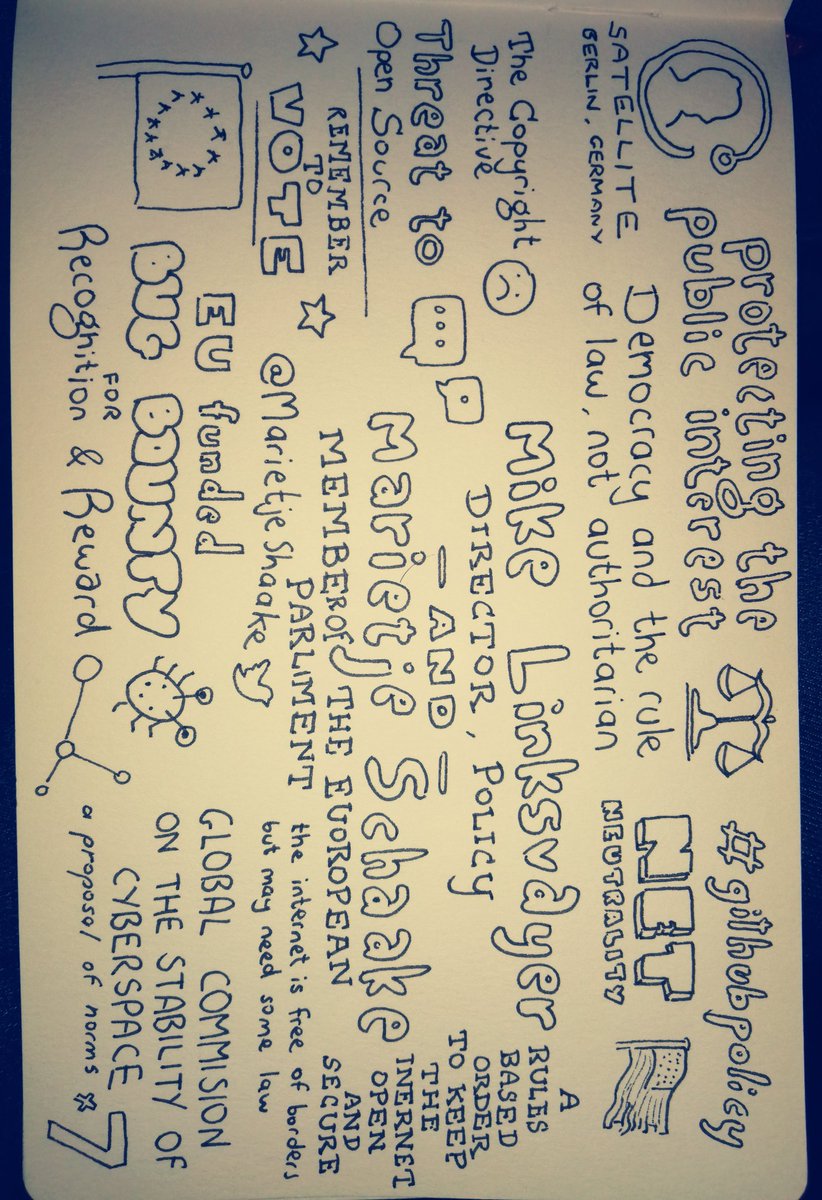 SATELLITE
BERLIN, GERMANY
protecting the
public interest
Democracy and the rule
of law, not authoritarian
#githubpolicy
NET
NEUTRALITY
The Copyright
Directive
Threat to
Open Source
Mike Linksvayer
DIRECTOR, POLICY
– AND –
Marietje Schaake
MEMBER OF THE EUOROPEAN
PARLIMENT
@MarietjeShaake
A
RULES
BASED
ORDER
TO KEEP
THE
INERNET
OPEN
AND
SECURE
REMEMBER
TO
VOTE
the internet is free of borders
but may need some law
EU funded
BUG BOUNTY
FOR
Recognition & Reward
GLOBAL COMMISION
ON THE STABILITY OF
CYBERSPACE
a proposal of norms * 7